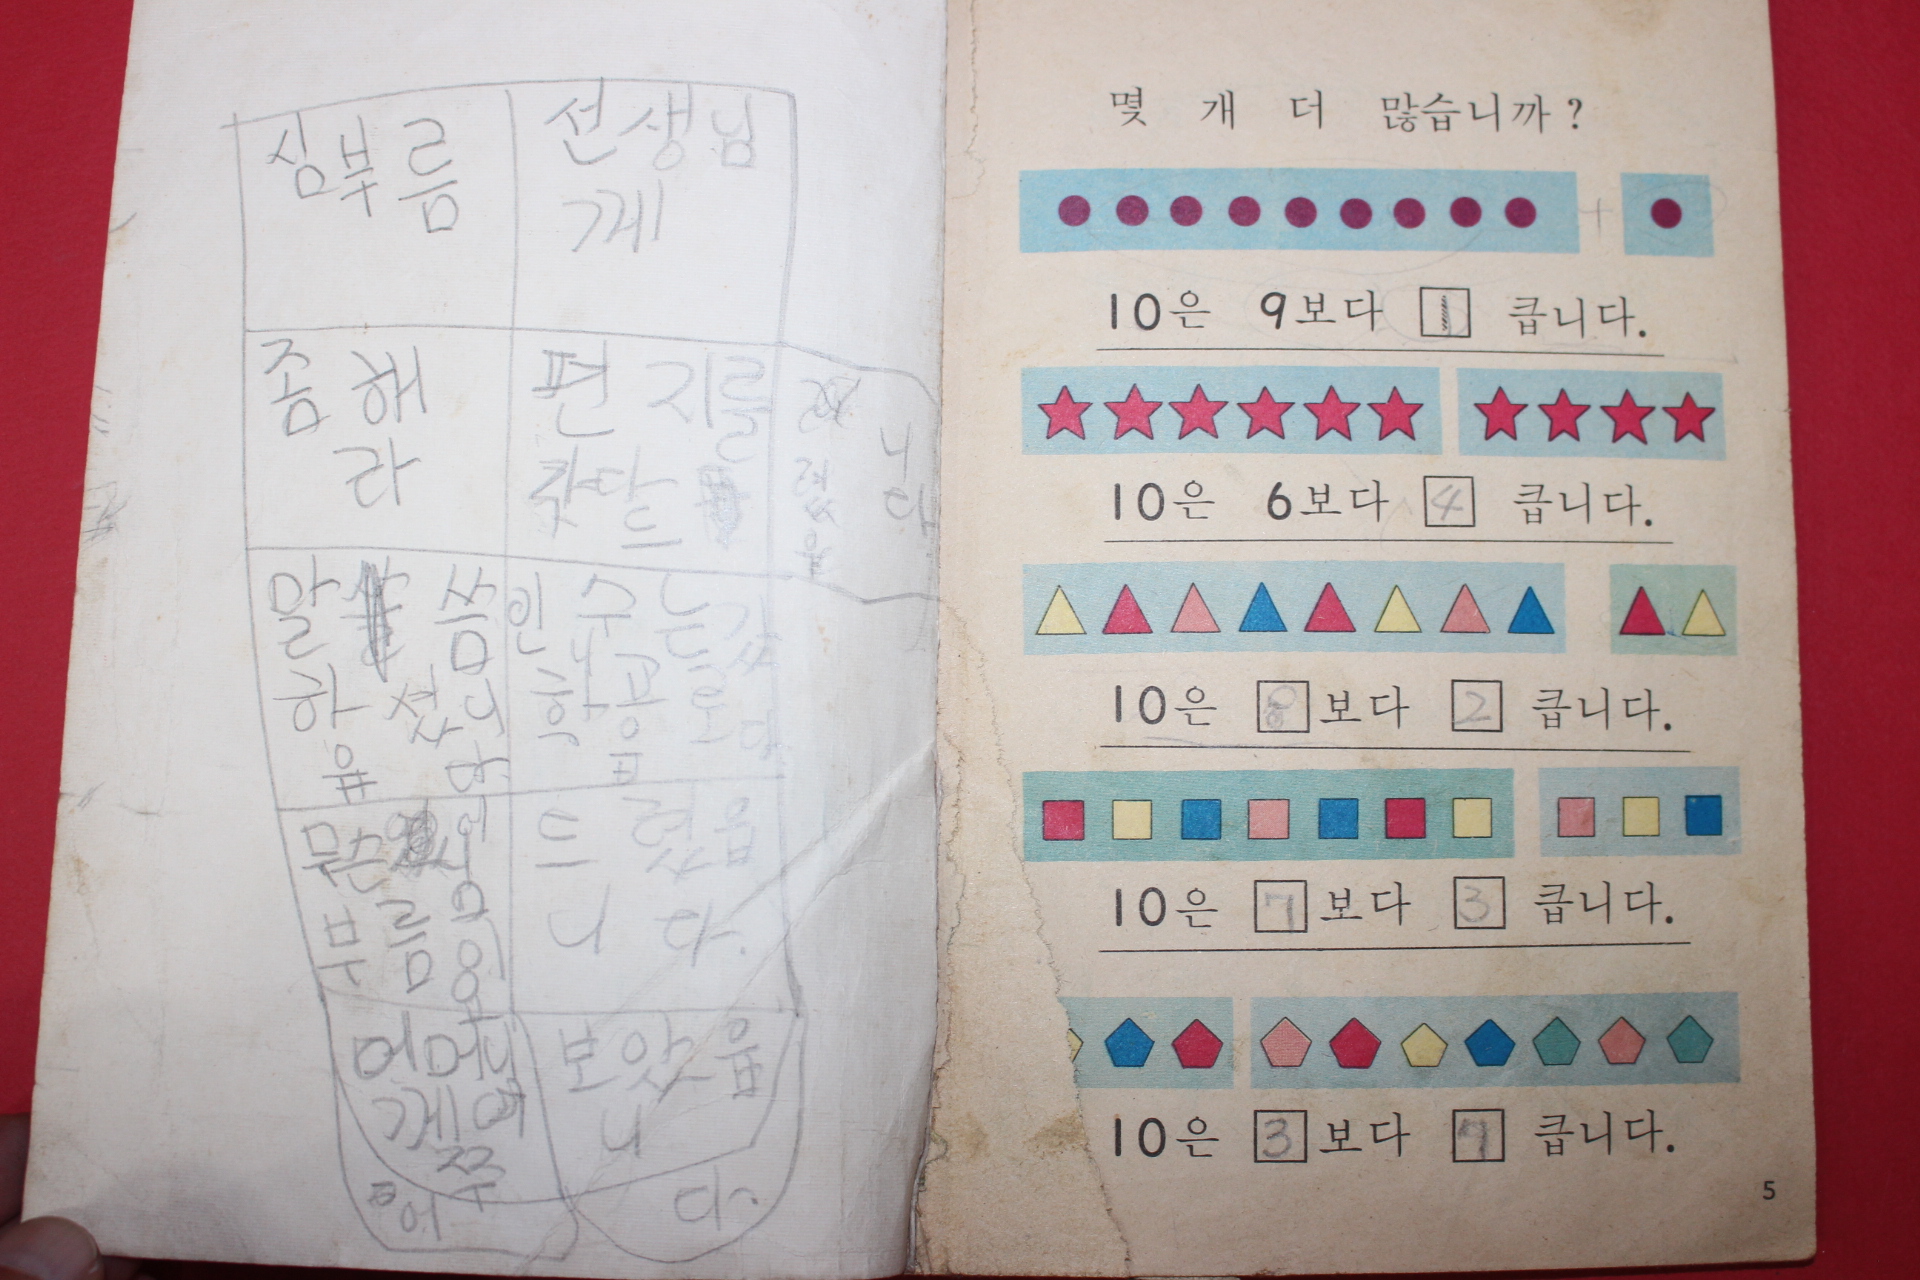 심부름
선생님
게
좀 해
라
편지를
갖다
드
니
다
말 씀
하 셨 니
읍 다
인 수 는
학 교
드 렸 읍
니 다.
무슨
부름
어머니
게
보 았 읍
니
다.
어
몇 개 더 많습니까?
10은 9보다 1 큽니다.
10은 6보다 4 큽니다.
10은 8보다 2 큽니다.
10은 7보다 3 큽니다.
10은 3보다 7 큽니다.
5